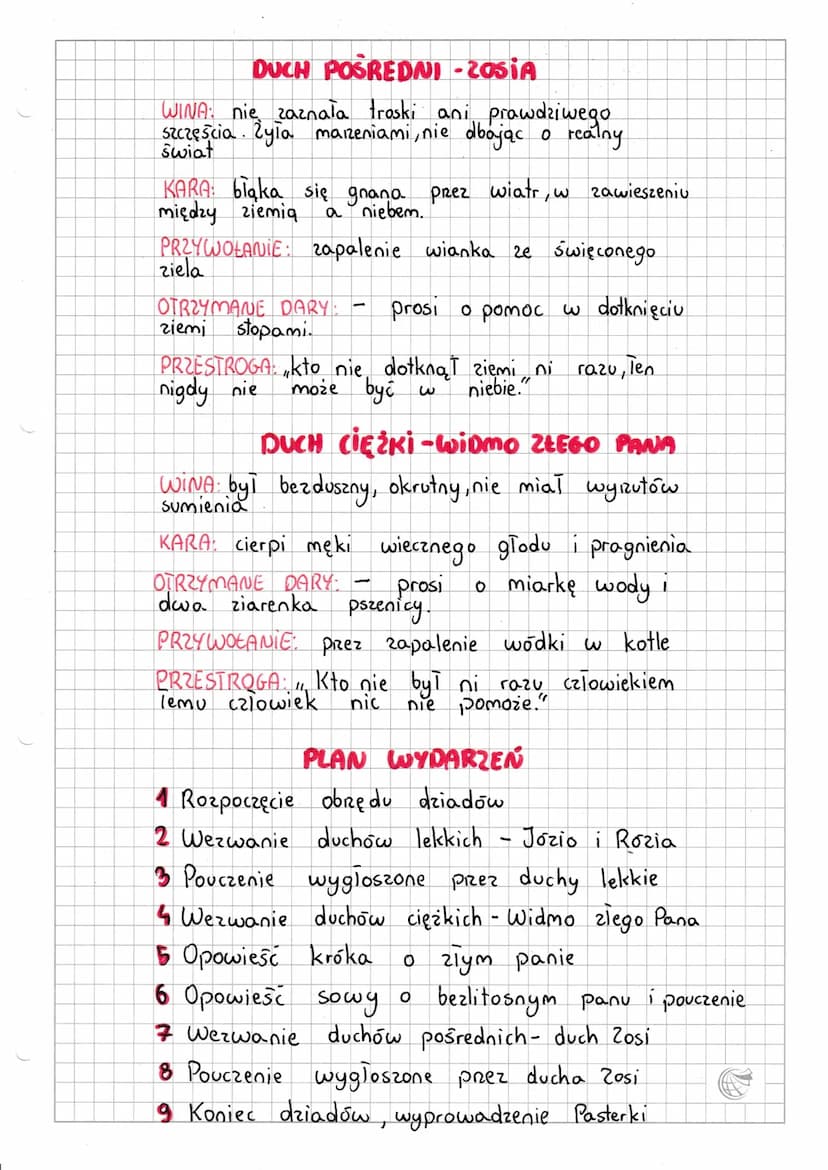 DUCH POŚREDNI - ZOSIA
WINA: nie zaznała troski ani prawdziwego
szczęścia. Żyła marzeniami, nie dbając o realny
świat
KARA: błąka się gnana przez wiatr, w zawieszeniu
między ziemią a niebem.
PRZYWOŁANIE: zapalenie wianka ze święconego
ziela
OTRZYMANE DARY: - prosi o pomoc w dotknięciu
ziemi stopami.
PRZESTROGA: „kto nie dotknął ziemi ni razu, Ten
nigdy nie może być w niebie."
DUCH CIĘŻKI - WIDMO ZŁEGO PANA
WINA: był bezduszny, okrutny, nie miał wyrzutów
sumienia
KARA: cierpi męki wiecznego głodu i pragnienia
OTRZYMANE DARY: - prosi o miarkę wody i
dwa ziarenka pszenicy.
PRZYWOŁANIE: przez zapalenie wódki w kotle
PRZESTROGA: „Kto nie był ni razu człowiekiem
temu człowiek nic nie pomoże."
PLAN WYDARZEŃ
1 Rozpoczęcie obrzędu dziadów
2 Wezwanie duchów lekkich - Józio i Rózia
3 Pouczenie wygłoszone przez duchy lekkie
4 Wezwanie duchów ciężkich - Widmo złego Pana
5 Opowieść króka o złym panie
6 Opowieść sowy o bezlitosnym panu i pouczenie
7 Wezwanie duchów pośrednich - duch Zosi
8 Pouczenie wygłoszone przez ducha Zosi
9 Koniec dziadów, wyprowadzenie Pasterki